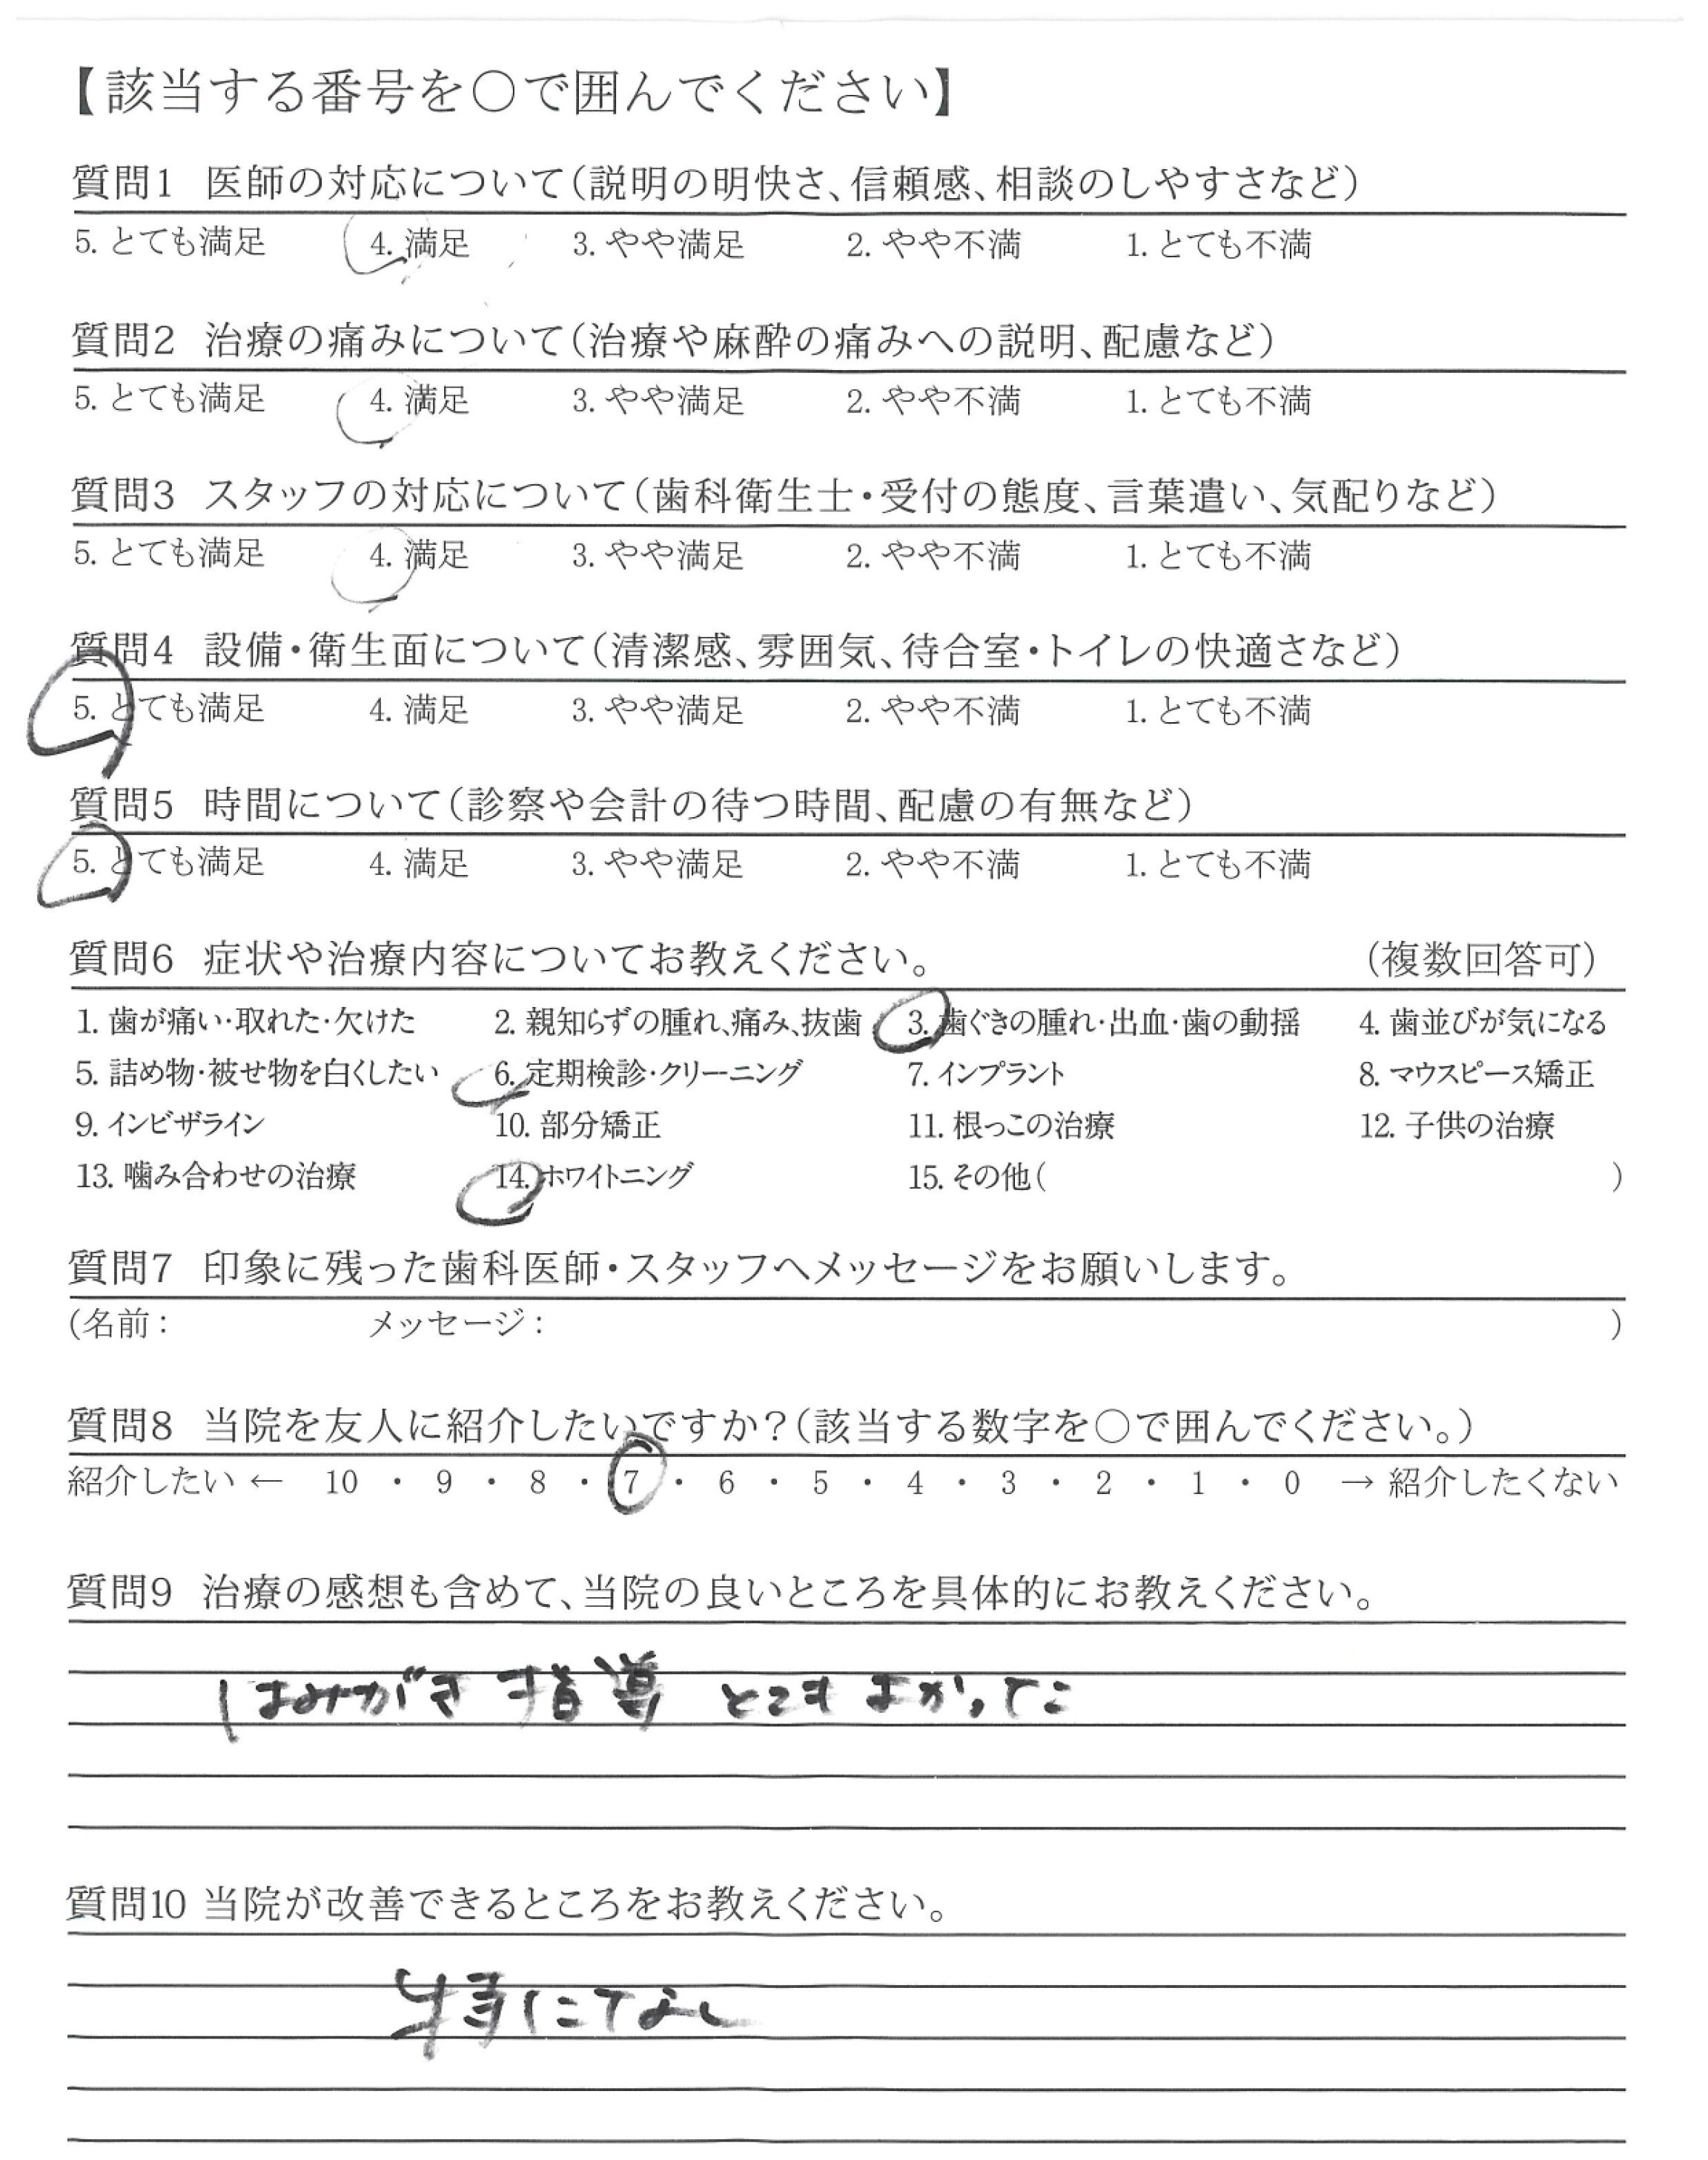 【該当する番号を○で囲んでください】
質問1 医師の対応について(説明の明快さ、信頼感、相談のしやすさなど)
5. とても満足 4. 満足 3. やや満足 2. やや不満 1. とても不満
質問2 治療の痛みについて(治療や麻酔の痛みへの説明、配慮など)
5. とても満足 4. 満足 3. やや満足 2. やや不満 1. とても不満
質問3 スタッフの対応について(歯科衛生士・受付の態度、言葉遣い、気配りなど)
5. とても満足 4. 満足 3. やや満足 2. やや不満 1. とても不満
質問4 設備・衛生面について(清潔感、雰囲気、待合室・トイレの快適さなど)
5. とても満足 4. 満足 3. やや満足 2. やや不満 1. とても不満
質問5 時間について(診察や会計の待つ時間、配慮の有無など)
5. とても満足 4. 満足 3. やや満足 2. やや不満 1. とても不満
質問6 症状や治療内容についてお教えください。 (複数回答可)
1. 歯が痛い・取れた・欠けた 2. 親知らずの腫れ、痛み、抜歯 3. 歯ぐきの腫れ・出血・歯の動揺 4. 歯並びが気になる
5. 詰め物・被せ物を白くしたい 6. 定期検診・クリーニング 7. インプラント 8. マウスピース矯正
9. インビザライン 10. 部分矯正 11. 根っこの治療 12. 子供の治療
13. 噛み合わせの治療 14. ホワイトニング 15. その他( )
質問7 印象に残った歯科医師・スタッフへメッセージをお願いします。
(名前： メッセージ： )
質問8 当院を友人に紹介したいですか？(該当する数字を○で囲んでください。)
紹介したい ← 10 ・ 9 ・ 8 ・ 7 ・ 6 ・ 5 ・ 4 ・ 3 ・ 2 ・ 1 ・ 0 → 紹介したくない
質問9 治療の感想も含めて、当院の良いところを具体的にお教えください。
はみがき 指導 とても よかった
質問10 当院が改善できるところをお教えください。
特になし